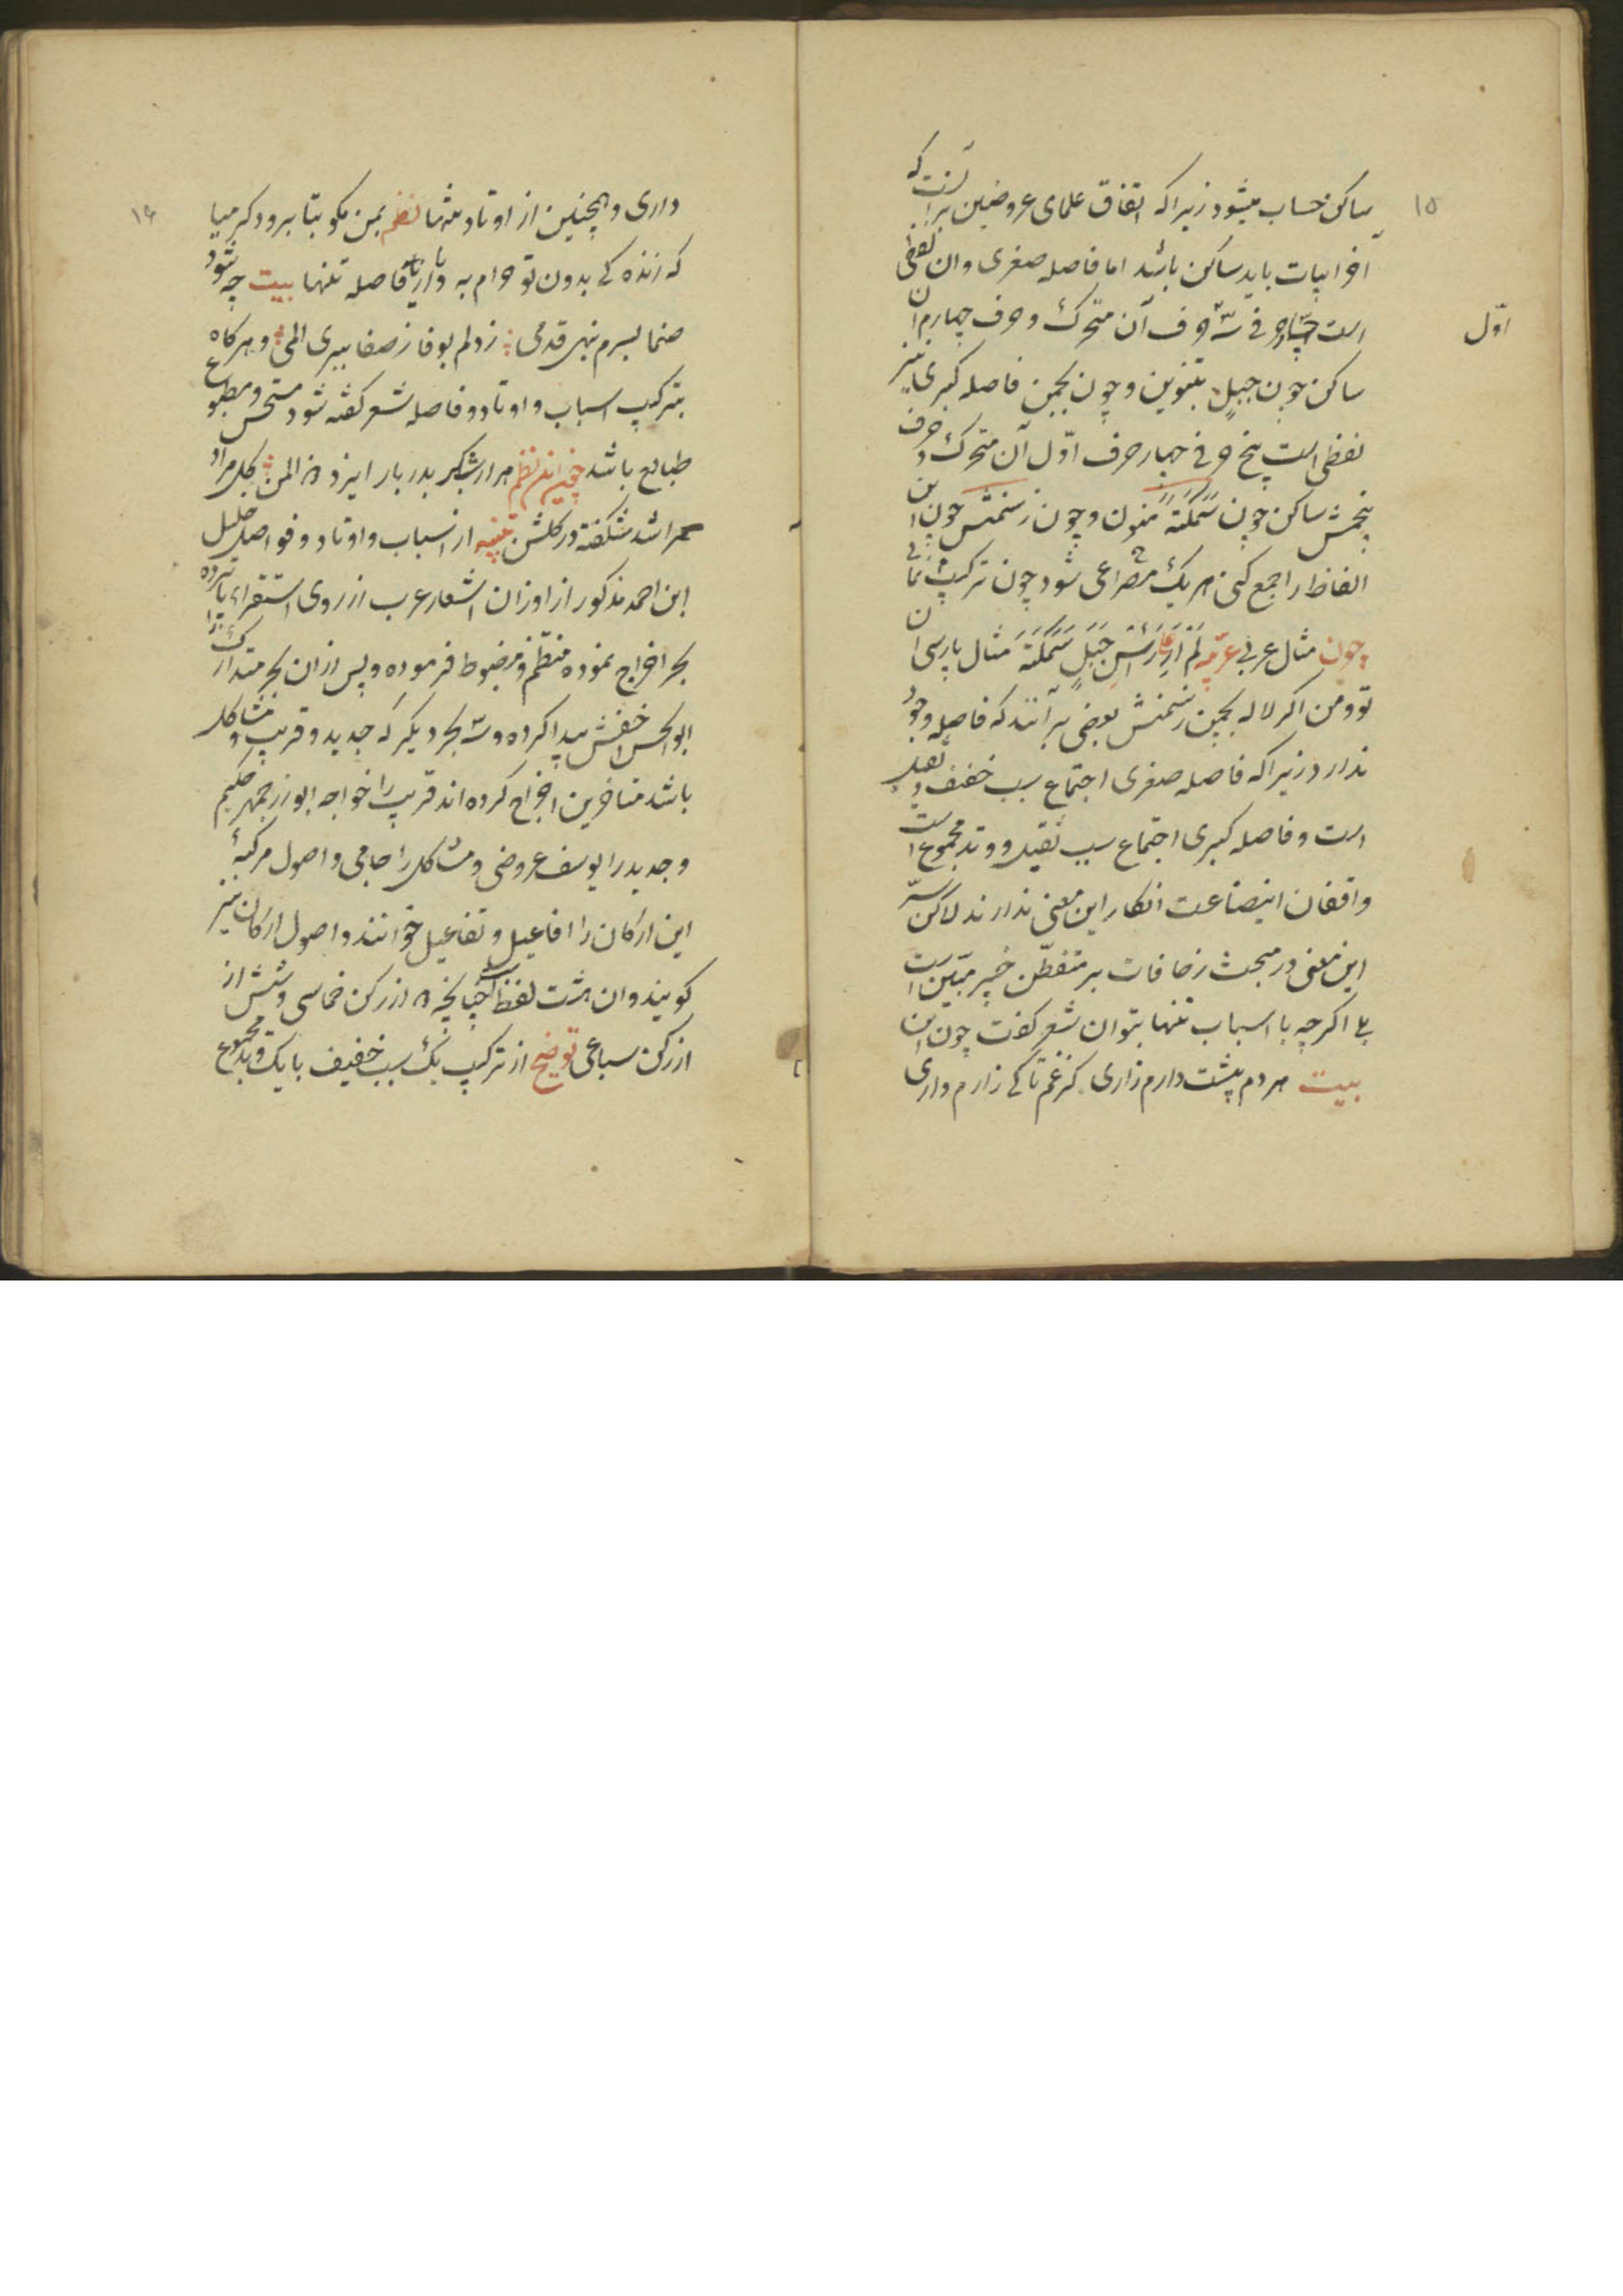 ۱۵
ساکن حساب میشود زیراکه اتفاق علمای عروضین بر آنست که
آخر ابیات باید ساکن باشد اما فاصله صغری وان لفظی
است چهار حرفی سه حرف آن متحرک و حرف چهارم ان
اوّل
ساکن چون جبلٍ بتنوین و چون بچمن فاصله کبری نیز
لفظی است پنج حرفی چهار حرف اوّل آن متحرک و حرف
پنجمش ساکن چون سَمَکَةً منون و چون زسمنش چون این
الفاظ را جمع کنی هر یک مصراعی شود چون ترکیب
چون مثال عربی لَمْ اَرَ رَأسِ جَبَلٍ سَمَکَةً مثال پارسی ان
تو و من اکر لاله بچمن زسمنش بعضی برآنند که فاصله وجود
ندارد زیراکه فاصله صغری اجتماع سبب خفیف و ثقیل
است و فاصله کبری اجتماع سبب ثقیل و وتد مجموع است
واقفان اینصناعت انکار این معنی ندارند لاکن سرّ
این معنی در مبحث زحافات بر متفطّن خبیر مبیّن است
اکرچه با اسباب تنها بتوان شعر کفت چون این
بیت هر دم پیشت دارم زاری کز غم تا کی زارم داری
۱۶
داری و همچنین از اوتاد تنها نظم بمن بکو بتا برو دکر میا
که زنده کی بدون تو حرام به و از فاصله تنها بیت چه شود
صنما بسرم بنهی قدمی ز دلم بوفا ز صفا ببری المی و هرکاه
بترکیب اسباب و اوتاد و فاصله شعر کفته شود مستحسن و مطبوع
طبایع باشد نظم هزار شکر بدربار ایزد ذو المن کل مراد
مرا شد شکفته در کلشن تنبیه از اسباب و اوتاد و فواصل خلیل
ابن احمد مذکور از اوزان اشعار عرب از روی استقراء پانزده
بحر اخراج نموده منظّم و مضبوط فرموده و پس ازان بحر متدارک را
ابوالحسن اخفش پیدا کرده و سه بحر دیکر که جدید و قریب و مشاکل
باشد متاخرین اخراج کرده اند قریب را خواجه ابوزرجمهر حکیم
و جدید را یوسف عروضی و مشاکل را جامی و اصول مرکبهٔ
این ارکان را افاعیل و تفاعیل خوانند و اصول ارکان نیز
کویند وان هشت لفظ است چنانچه دو از رکن خماسی و شش از
از رکن سباعی توضیح از ترکیب یک سبب خفیف با یک وتد مجموع